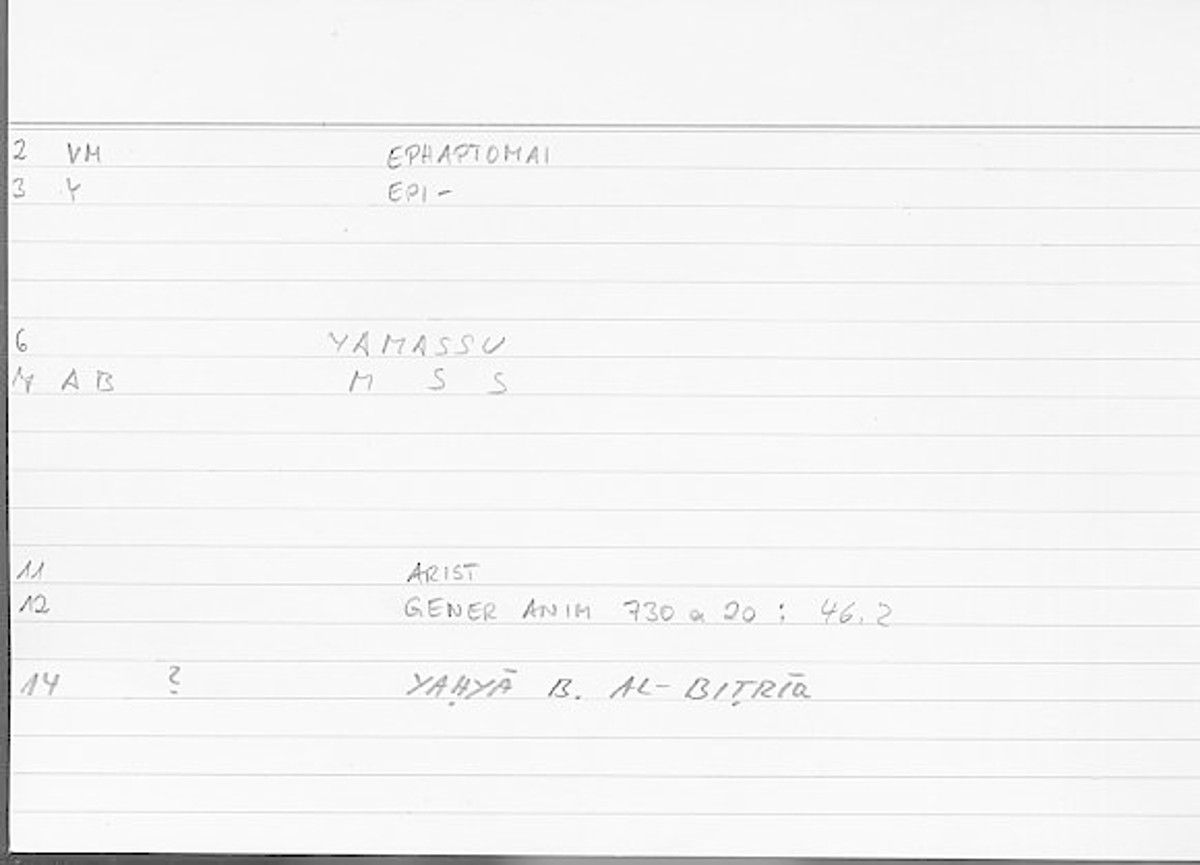 2 VM EPHAPTOMAI
3 Y EPI-
6 YAMASSU
7 A B M S S
11 ARIST
12 GENER ANIM 730 a 20 : 46.2
14 ? YAḤYĀ B. AL-BIṬRĪQ